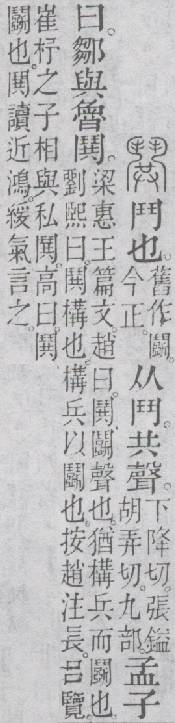 鬨鬥也。舊作鬬。今正。从鬥。共聲。下降切。張鎰胡弄切。九部。孟子
曰。鄒與魯鬨。梁惠王篇文。趙曰。鬨、鬬聲也。猶構兵而鬬也。劉熙曰。鬨、構也。構兵以鬬也。按趙注長。呂覽
崔杼之子相與私鬨。高曰。鬨、鬬也。鬨讀近鴻。緩氣言之。